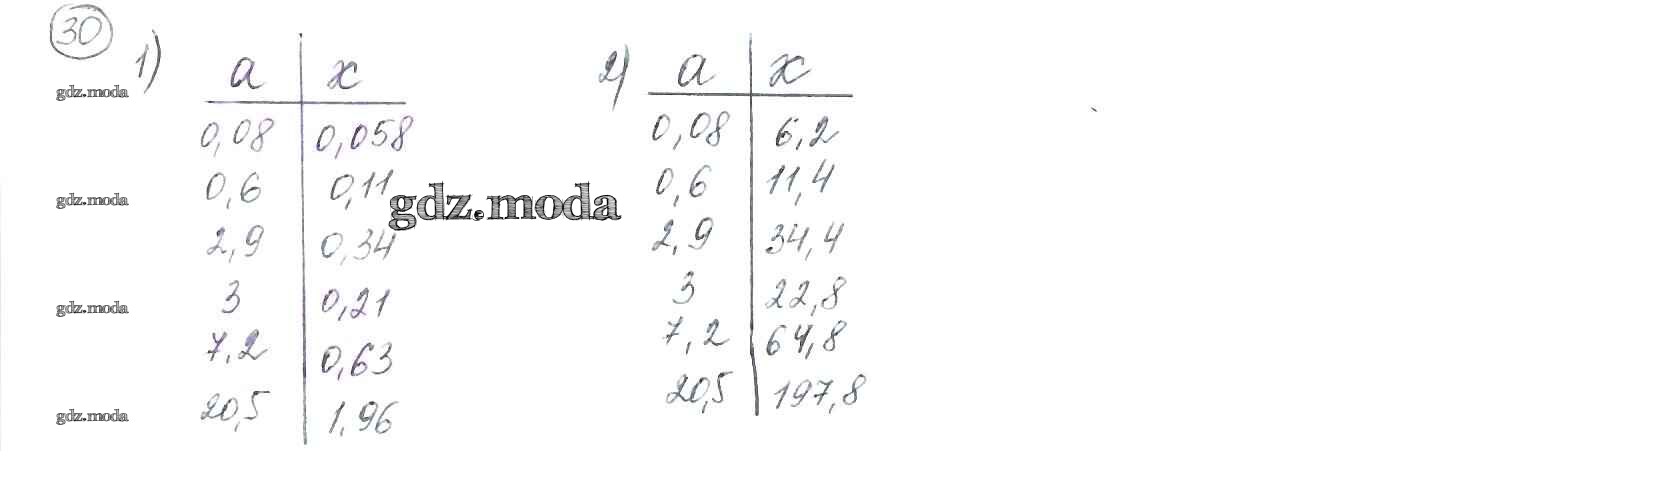 30
1)
a x
0,08 0,058
0,6 0,11
2,9 0,34
3 0,21
7,2 0,63
20,5 1,96
2)
a x
0,08 6,2
0,6 11,4
2,9 34,4
3 22,8
7,2 64,8
20,5 197,8
gdz.moda
gdz.moda
gdz.moda
gdz.moda
gdz.moda